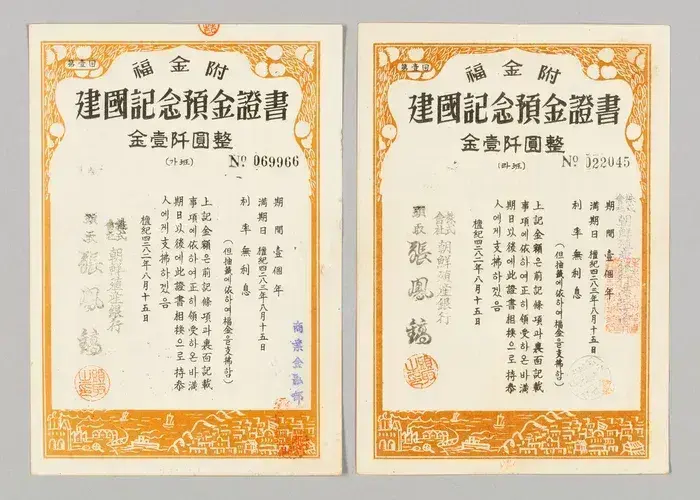 第壹回
福金附
建國記念預金證書
金壹阡圓整
(가班)
No 069966
期間 壹個年
満期日 檀紀四二八三年八月十五日
利率 無利息
(但抽籤에依하여福金을支拂함)
上記金額은前記條項과裏面記載
事項에依하여正히領受하온바満
期日以後에此證書相換으로持參
人에게支拂하겠음
檀紀四二八二年八月十五日
株式會社 朝鮮殖産銀行
頭取 張鳳鎬
商業金融部
第壹回
福金附
建國記念預金證書
金壹阡圓整
(라班)
No 022045
期間 壹個年
満期日 檀紀四二八三年八月十五日
利率 無利息
(但抽籤에依하여福金을支拂함)
上記金額은前記條項과裏面記載
事項에依하여正히領受하온바満
期日以後에此證書相換으로持參
人에게支拂하겠음
檀紀四二八二年八月十五日
株式會社 朝鮮殖産銀行
頭取 張鳳鎬